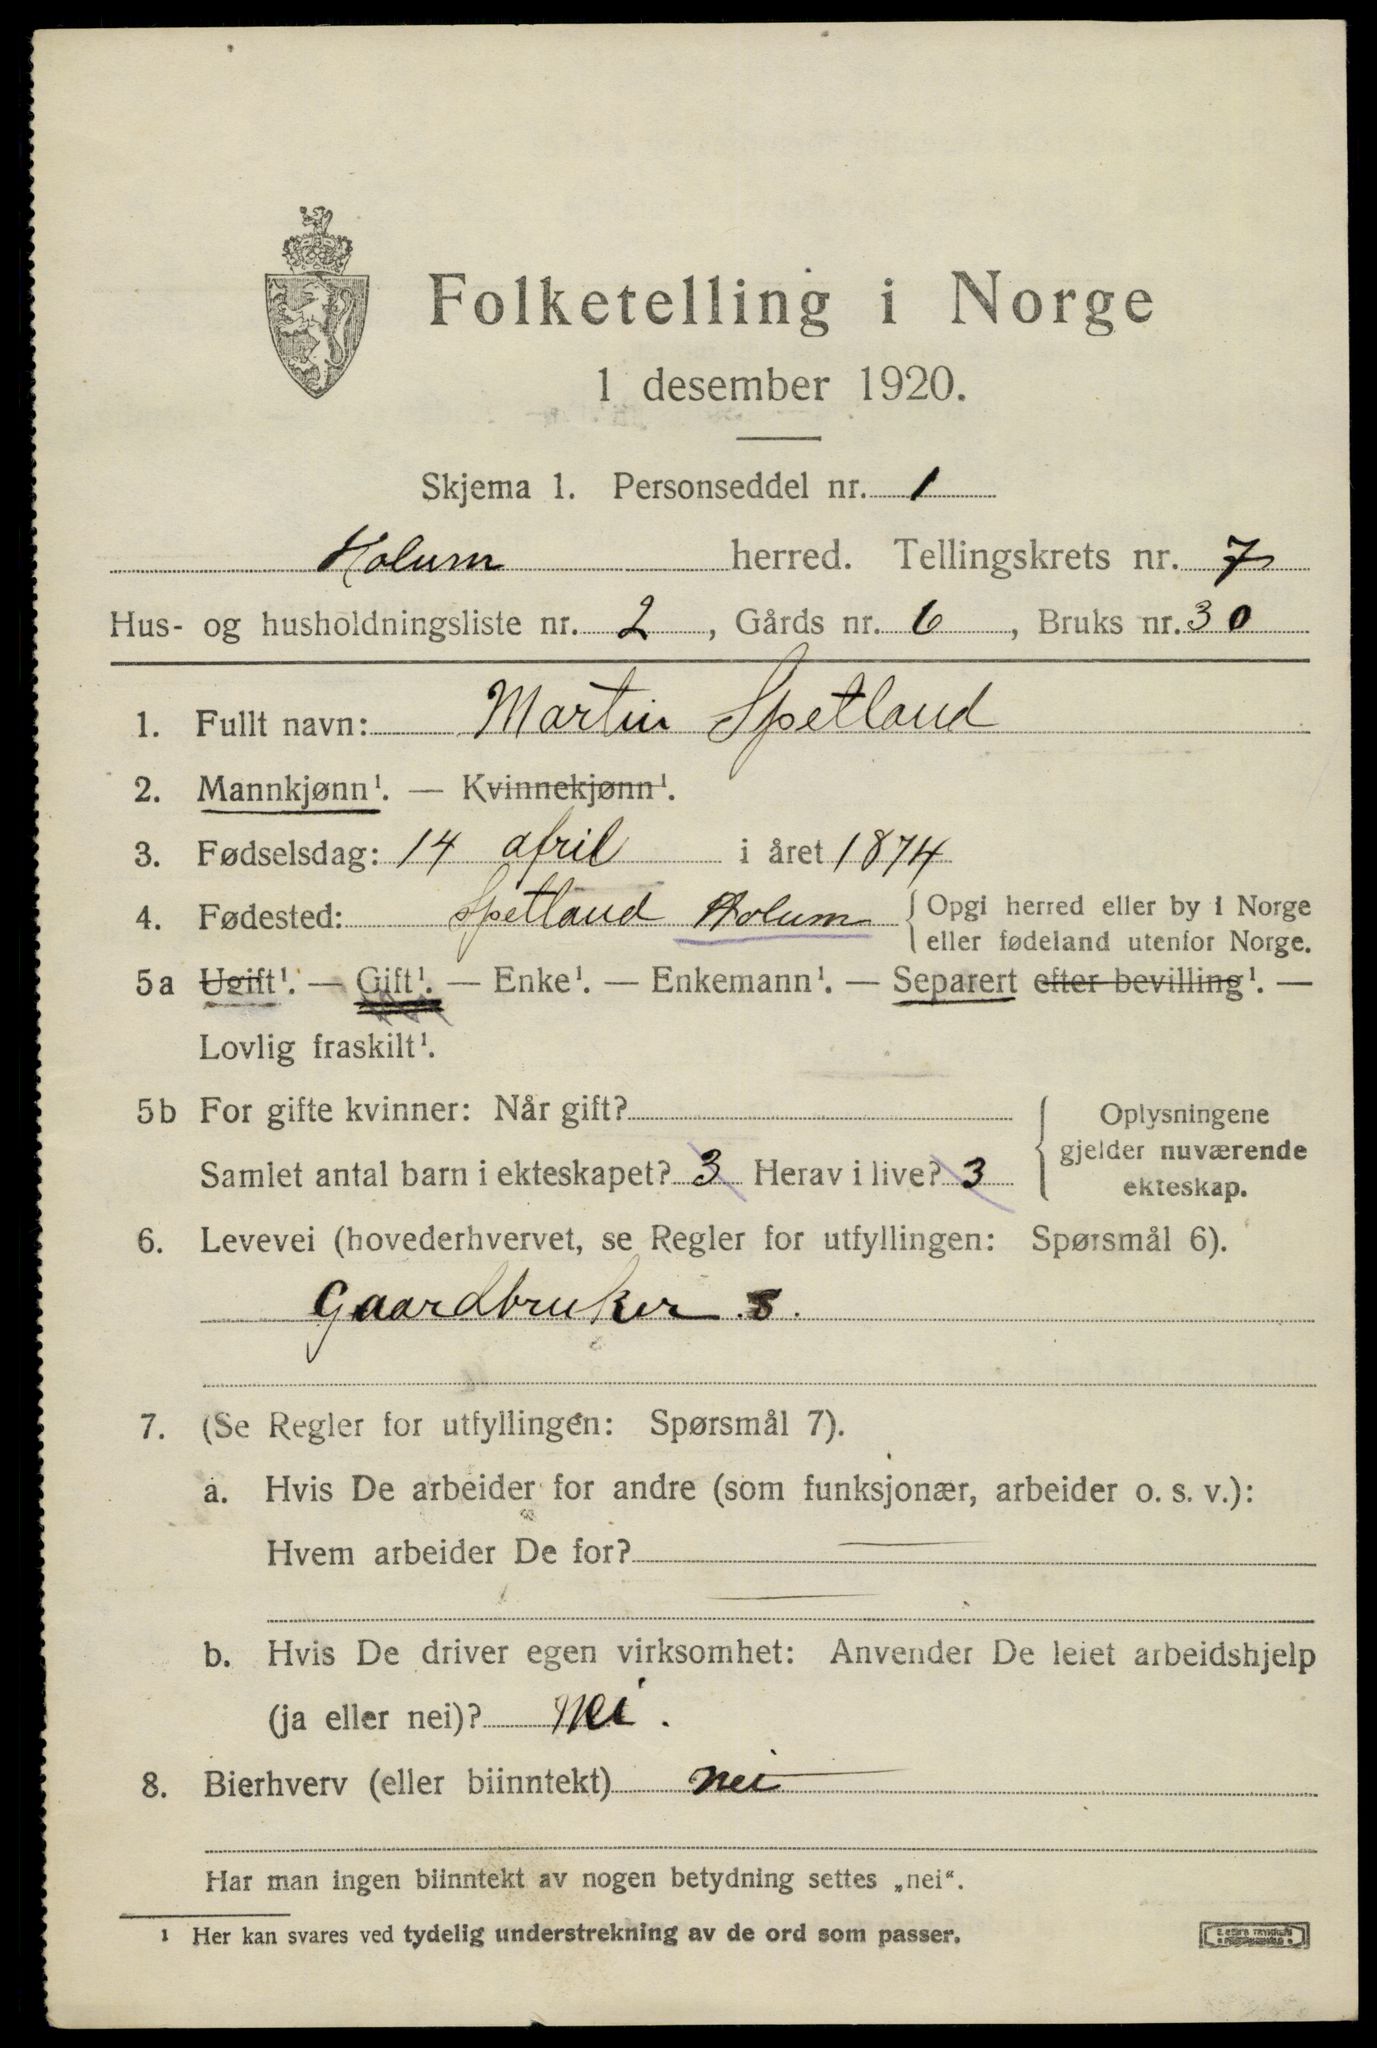 Folketelling i Norge
1 desember 1920.
Skjema 1. Personseddel nr. 1
Holum herred. Tellingskrets nr. 7
Hus- og husholdningsliste nr. 2, Gårds nr. 6, Bruks nr. 30
1. Fullt navn: Martin Spetland
2. Mannkjønn¹. — Kvinnekjønn¹.
3. Fødselsdag: 14 april i året 1874
4. Fødested: Spetland Holum { Opgi herred eller by i Norge
eller fødeland utenfor Norge.
5a Ugift¹. — Gift¹. — Enke¹. — Enkemann¹. — Separert efter bevilling¹. —
Lovlig fraskilt¹.
5b For gifte kvinner: Når gift?
Samlet antal barn i ekteskapet? 3 Herav i live? 3
{ Oplysningene
gjelder nuværende
ekteskap.
6. Levevei (hovederhvervet, se Regler for utfyllingen: Spørsmål 6).
Gaardbruker s.
7. (Se Regler for utfyllingen: Spørsmål 7).
a. Hvis De arbeider for andre (som funksjonær, arbeider o. s. v.):
Hvem arbeider De for? —
—
b. Hvis De driver egen virksomhet: Anvender De leiet arbeidshjelp
(ja eller nei)? Nei.
8. Bierhverv (eller biinntekt) nei
Har man ingen biinntekt av nogen betydning settes „nei“.
¹ Her kan svares ved tydelig understrekning av de ord som passer.